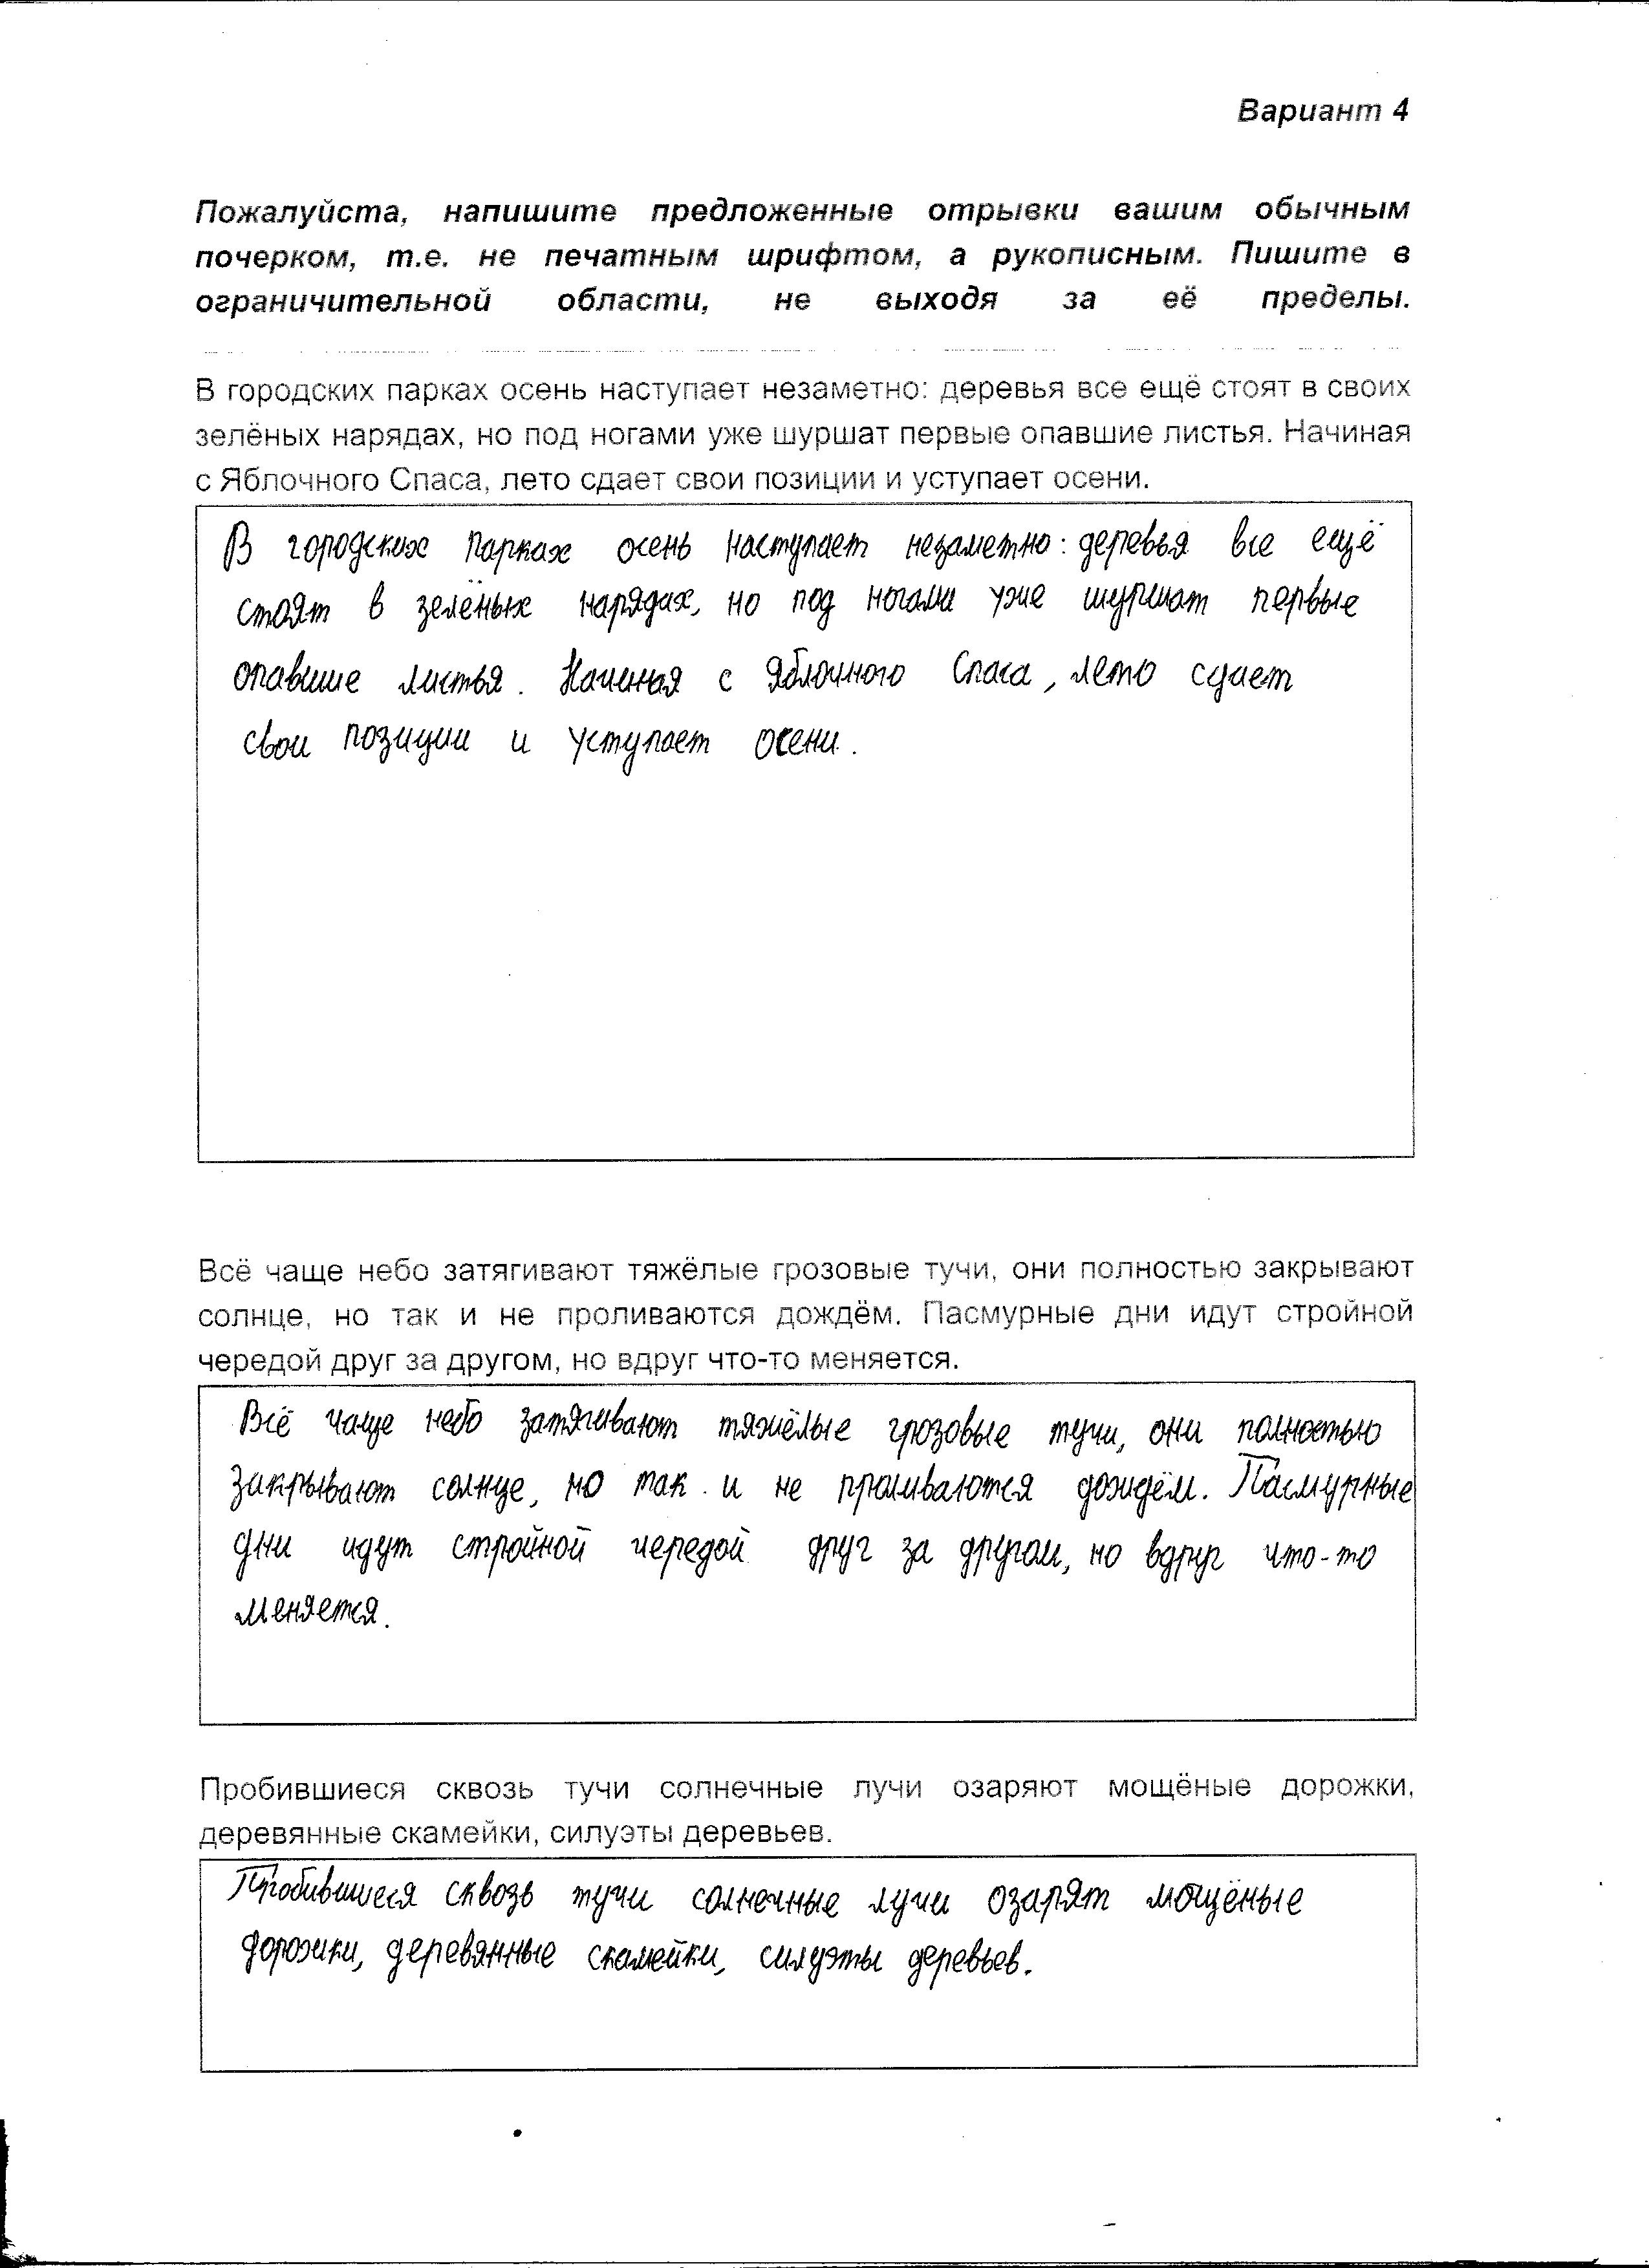 Вариант 4
Пожалуйста, напишите предложенные отрывки вашим обычным
почерком, т.е. не печатным шрифтом, а рукописным. Пишите в
ограничительной области, не выходя за её пределы.
В городских парках осень наступает незаметно: деревья все ещё стоят в своих
зелёных нарядах, но под ногами уже шуршат первые опавшие листья. Начиная
с Яблочного Спаса, лето сдает свои позиции и уступает осени.
В городских парках осень наступает незаметно: деревья все ещё
стоят в зелёных нарядах, но под ногами уже шуршат первые
опавшие листья. Начиная с Яблочного Спаса, лето сдает
свои позиции и уступает осени.
Всё чаще небо затягивают тяжёлые грозовые тучи, они полностью закрывают
солнце, но так и не проливаются дождём. Пасмурные дни идут стройной
чередой друг за другом, но вдруг что-то меняется.
Всё чаще небо затягивают тяжёлые грозовые тучи, они полностью
закрывают солнце, но так и не проливаются дождём. Пасмурные
дни идут стройной чередой друг за другом, но вдруг что-то
меняется.
Пробившиеся сквозь тучи солнечные лучи озаряют мощёные дорожки,
деревянные скамейки, силуэты деревьев.
Пробившиеся сквозь тучи солнечные лучи озарят мощёные
дорожки, деревянные скамейки, силуэты деревьев.